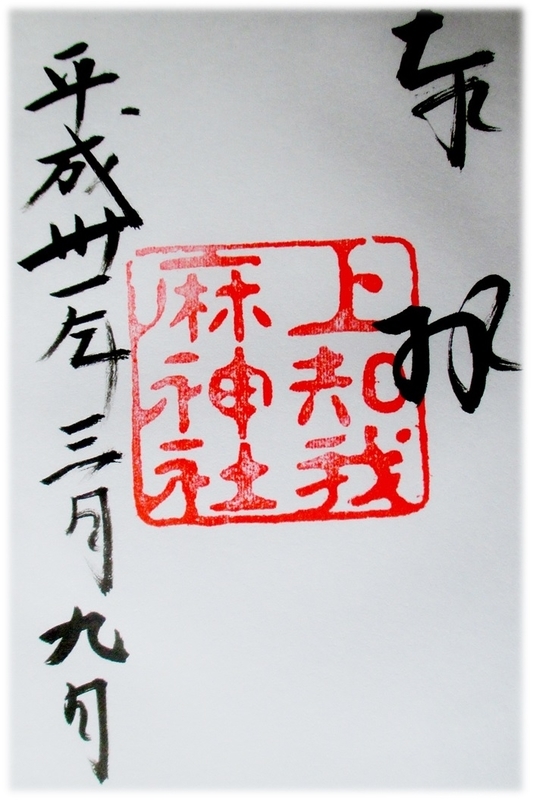 奉拝
上知我
麻神社
平成卅一年三月九日